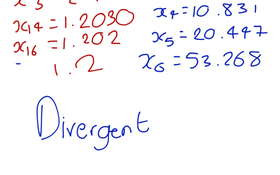 x₁₄ = 1.2030
x₁₆ = 1.202
1.2
x₄ = 10.831
x₅ = 20.447
x₆ = 53.268
Divergent